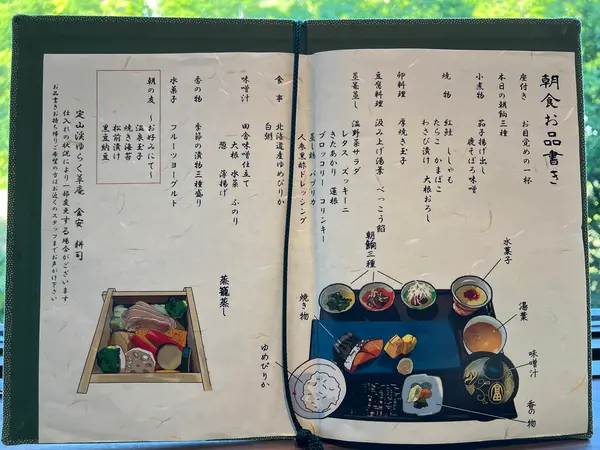 朝食お品書き
座付き お目覚めの一杯
本日の朝鉢三種
小煮物 茄子揚げ出し
鹿そぼろ味噌
焼物 紅鮭 ししゃも
たらこ かまぼこ
わさび漬け 大根おろし
卵料理 厚焼き玉子
豆腐料理 汲み上げ湯葉 べっこう餡
温野菜サラダ
レタス・ズッキーニ
きたあかり 蓮根
ブロッコリー コリンキー
蒸し鶏 パプリカ
人参黒酢ドレッシング
食事 北海道産ゆめぴりか
白粥
味噌汁 田舎味噌仕立て
大根 水菜 ふのり
葱 薄揚げ
香の物 季節の漬物三種盛り
水菓子 フルーツヨーグルト
朝の友 ～お好みにて～
温泉玉子
焼き海苔
松前漬け
黒豆納豆
定山渓ゆらく草庵 金安 耕司
仕入れの状況により一部変更する場合がございます
お品書きお持ち帰りご希望の方はお近くのスタッフまでお声がけ下さい
蒸籠蒸し
朝鉢三種
水菓子
湯葉
味噌汁
香の物
焼き物
ゆめぴりか